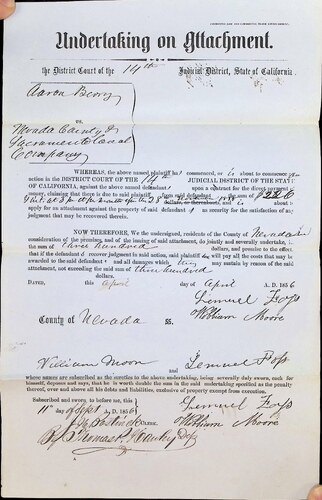 Undertaking on Attachment.
the District Court of the 14th Judicial District, State of California.
Aaron Berry
vs.
Nevada County &
Sacramento Canal
Company
WHEREAS, the above named plaintiff ha commenced, or is about to commence
action in the DISTRICT COURT OF THE 14th JUDICIAL DISTRICT OF THE STATE
OF CALIFORNIA, against the above named defendant upon a contract for the direct payment
money, claiming that there is due to said plaintiff from said defendant the sum of $226
dollars,
apply for an attachment against the property of said defendant as security for the satisfaction of any
judgment that may be recovered therein.
NOW THEREFORE, We the undersigned, residents of the County of Nevada in
consideration of the premises, and of the issuing of said attachment, do jointly and severally undertake, in
the sum of three hundred dollars, and promise to the effect
that if the defendant recover judgment in said action, said plaintiff will pay all the costs that may be
awarded to the said defendant and all damages which they may sustain by reason of the said
attachment, not exceeding the said sum of three hundred
dollars.
DATED, this day of April A. D. 1856
Lemuel
William Moore
County of Nevada SS.
William Moore and Lemuel
whose names are subscribed as the sureties to the above undertaking, being severally duly sworn, each for
himself, deposes and says, that he is worth double the sum in the said undertaking specified as the penalty
thereof, over and above all his debts and liabilities, exclusive of property exempt from execution.
Subscribed and sworn to before me, this
11th day of Sept A. D. 1856
Lemuel
Clerk. William Moore
By Thomas P. Hawley Dep